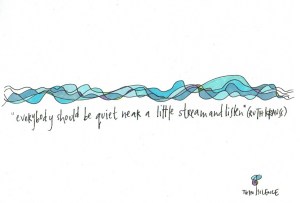 "everybody should be quiet near a little stream and listen" (RUTH KRAUSS)